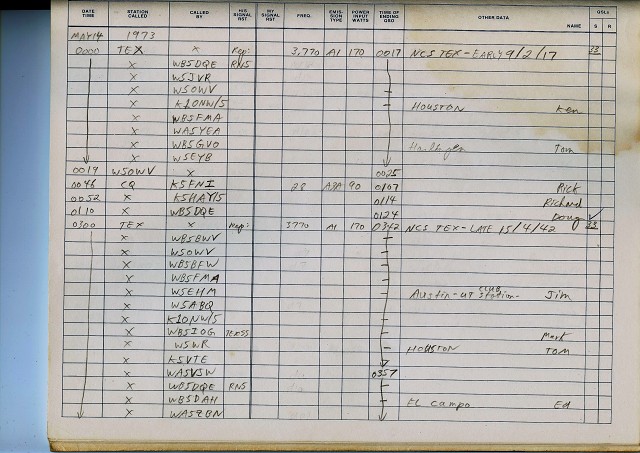 DATE TIME STATION CALLED CALLED BY HIS SIGNAL RST MY SIGNAL RST FREQ. EMIS- SION TYPE POWER INPUT WATTS TIME OF ENDING QSO OTHER DATA NAME QSLs S R
MAY 14 1973
0000 TEX X 3,770 A1 170 0017 NCS TEX-EARLY 9/2/17 23
X WB5DQE RN5
X W5JVR
X W5OWV
X K1ONW/5 HOUSTON Ken
X WB5FMA
X WA5YEA
X WB5GVO Tom
X W5EYB
0019 W5OWV X 0025
0046 CQ K5FNI 28 90 0107 Rick
0052 X K5HAY/5 0114 Richard
0110 X WB5DQE 0124 Doug ✓
0300 TEX X 3770 A1 170 0342 NCS TEX-LATE 15/4/42 23
X WB5BWV
X W5OWV
X WB5BFW
X WB5FMA
X W5EHM Austin-UT club station- Jim
X W5ABQ
X K1ONW/5
X WB5IOG Mark
X W5WR HOUSTON TOM
X K5VTE
X WA5VSW 0357
X WB5DQE RN5
X WB5DAH EL Campo Ed
X WA5ZBN